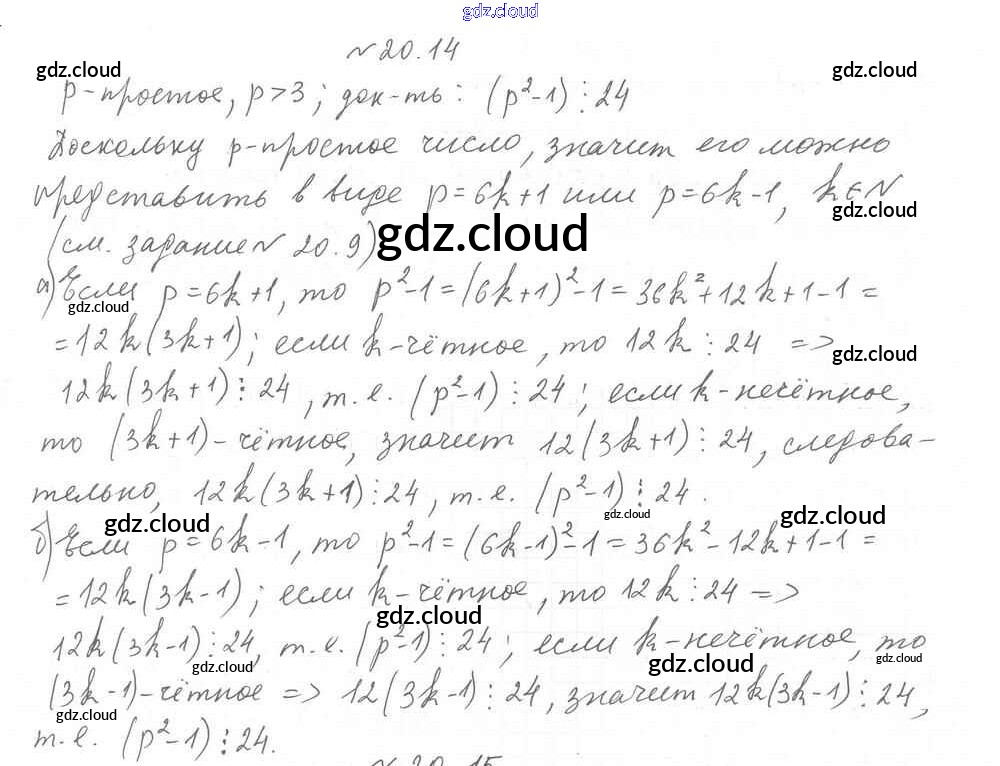 gdz.cloud
№ 20.14
gdz.cloud gdz.cloud
p-простое, p>3; док-ть: (p²-1)⋮24
Поскольку p-простое число, значит его можно
представить в виде p=6k+1 или p=6k-1, k∈N
gdz.cloud
(см. задание № 20.9)
gdz.cloud
а) Если p=6k+1, то p²-1=(6k+1)²-1=36k²+12k+1-1=
gdz.cloud
=12k(3k+1); если k-чётное, то 12k⋮24 =>
gdz.cloud
12k(3k+1)⋮24, т.е. (p²-1)⋮24; если k-нечётное,
то (3k+1)-чётное, значит 12(3k+1)⋮24, следова-
тельно, 12k(3k+1)⋮24, т.е. (p²-1)⋮24.
gdz.cloud gdz.cloud gdz.cloud
б) Если p=6k-1, то p²-1=(6k-1)²-1=36k²-12k+1-1=
=12k(3k-1); если k-чётное, то 12k⋮24 =>
gdz.cloud
12k(3k-1)⋮24, т.е. (p²-1)⋮24; если k-нечётное, то
gdz.cloud gdz.cloud gdz.cloud
(3k-1)-чётное => 12(3k-1)⋮24, значит 12k(3k-1)⋮24,
gdz.cloud
т.е. (p²-1)⋮24.
№ 20.15